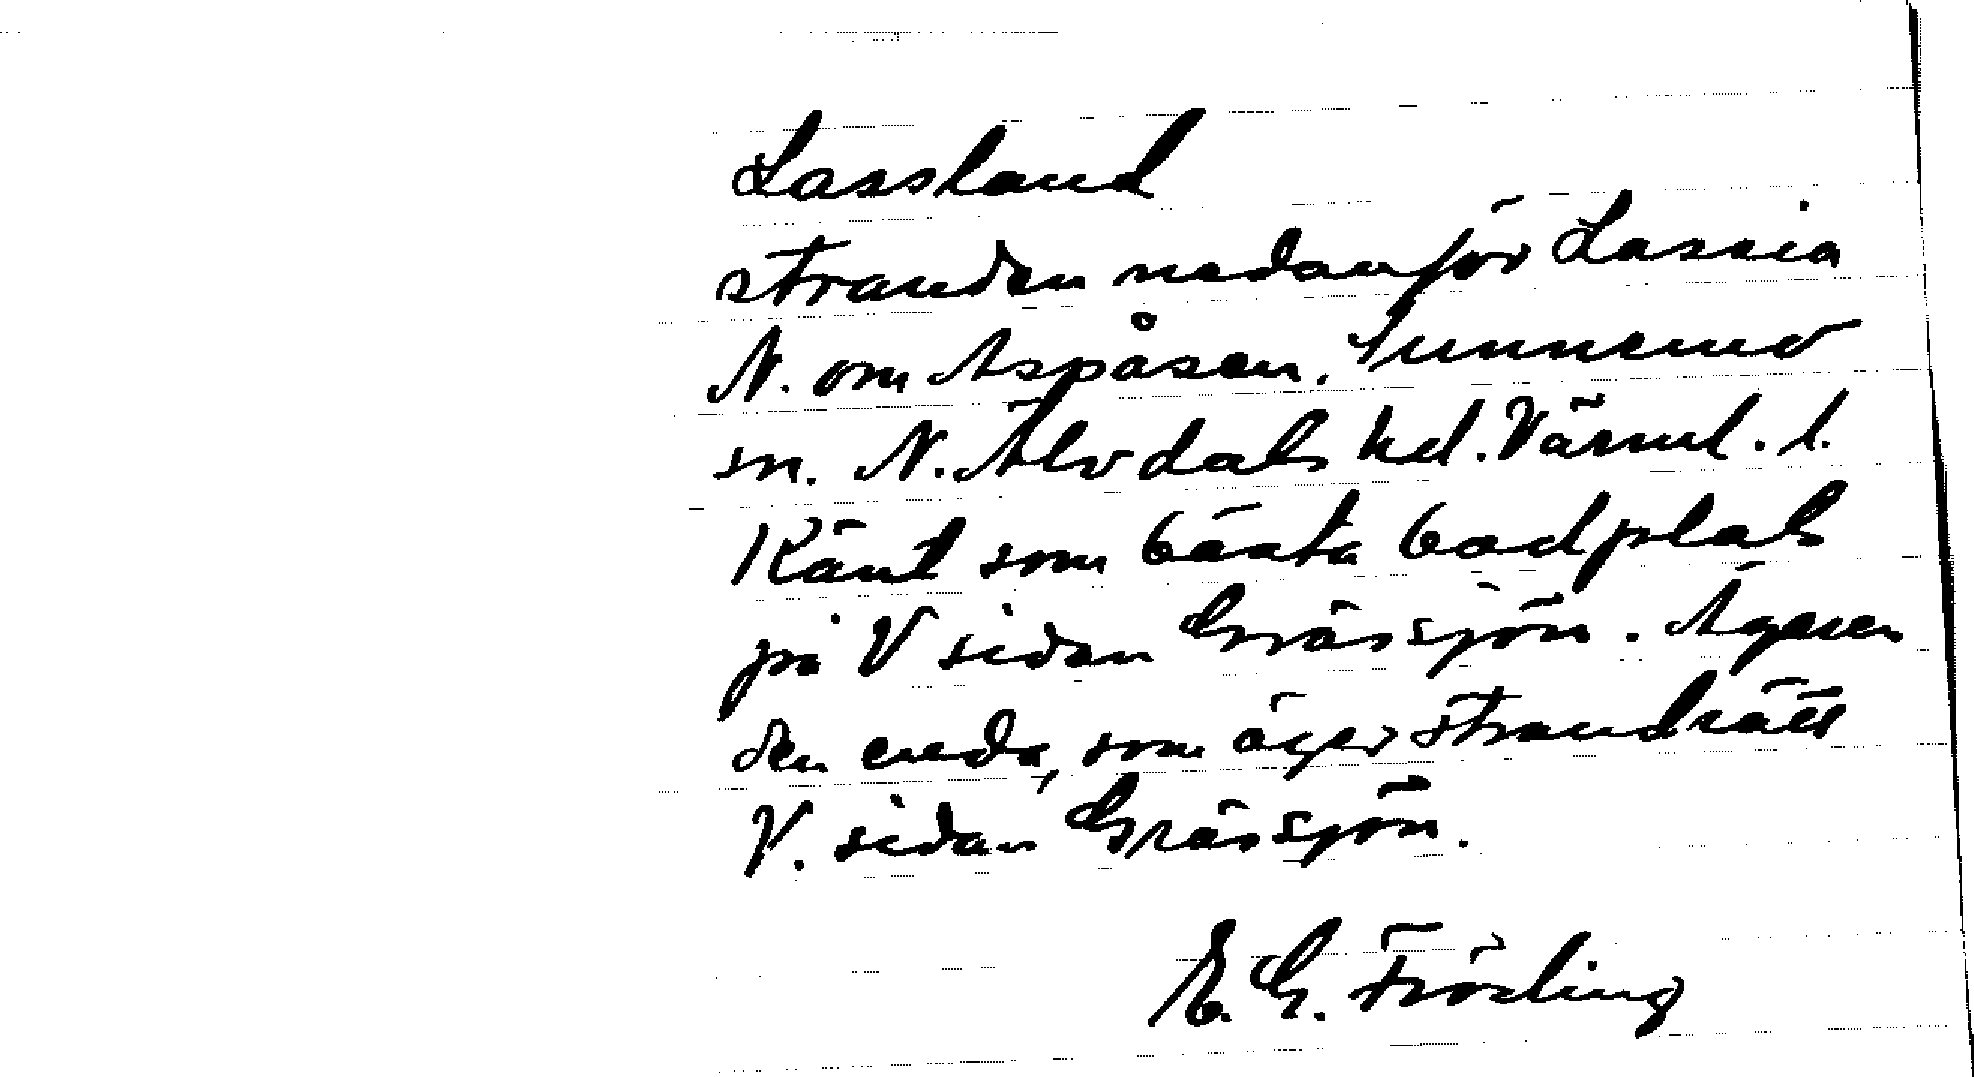 Lassland
stranden nedanför Lassia
N. om Aspåsen, Sunnemo
sn. N. Älvdals hd. Värml. l.
Känt som bästa badplats
på V sidan Grässjön. Ägaren
den enda, som äger strandrätt
V. sidan Grässjön.
E. G. Fröding